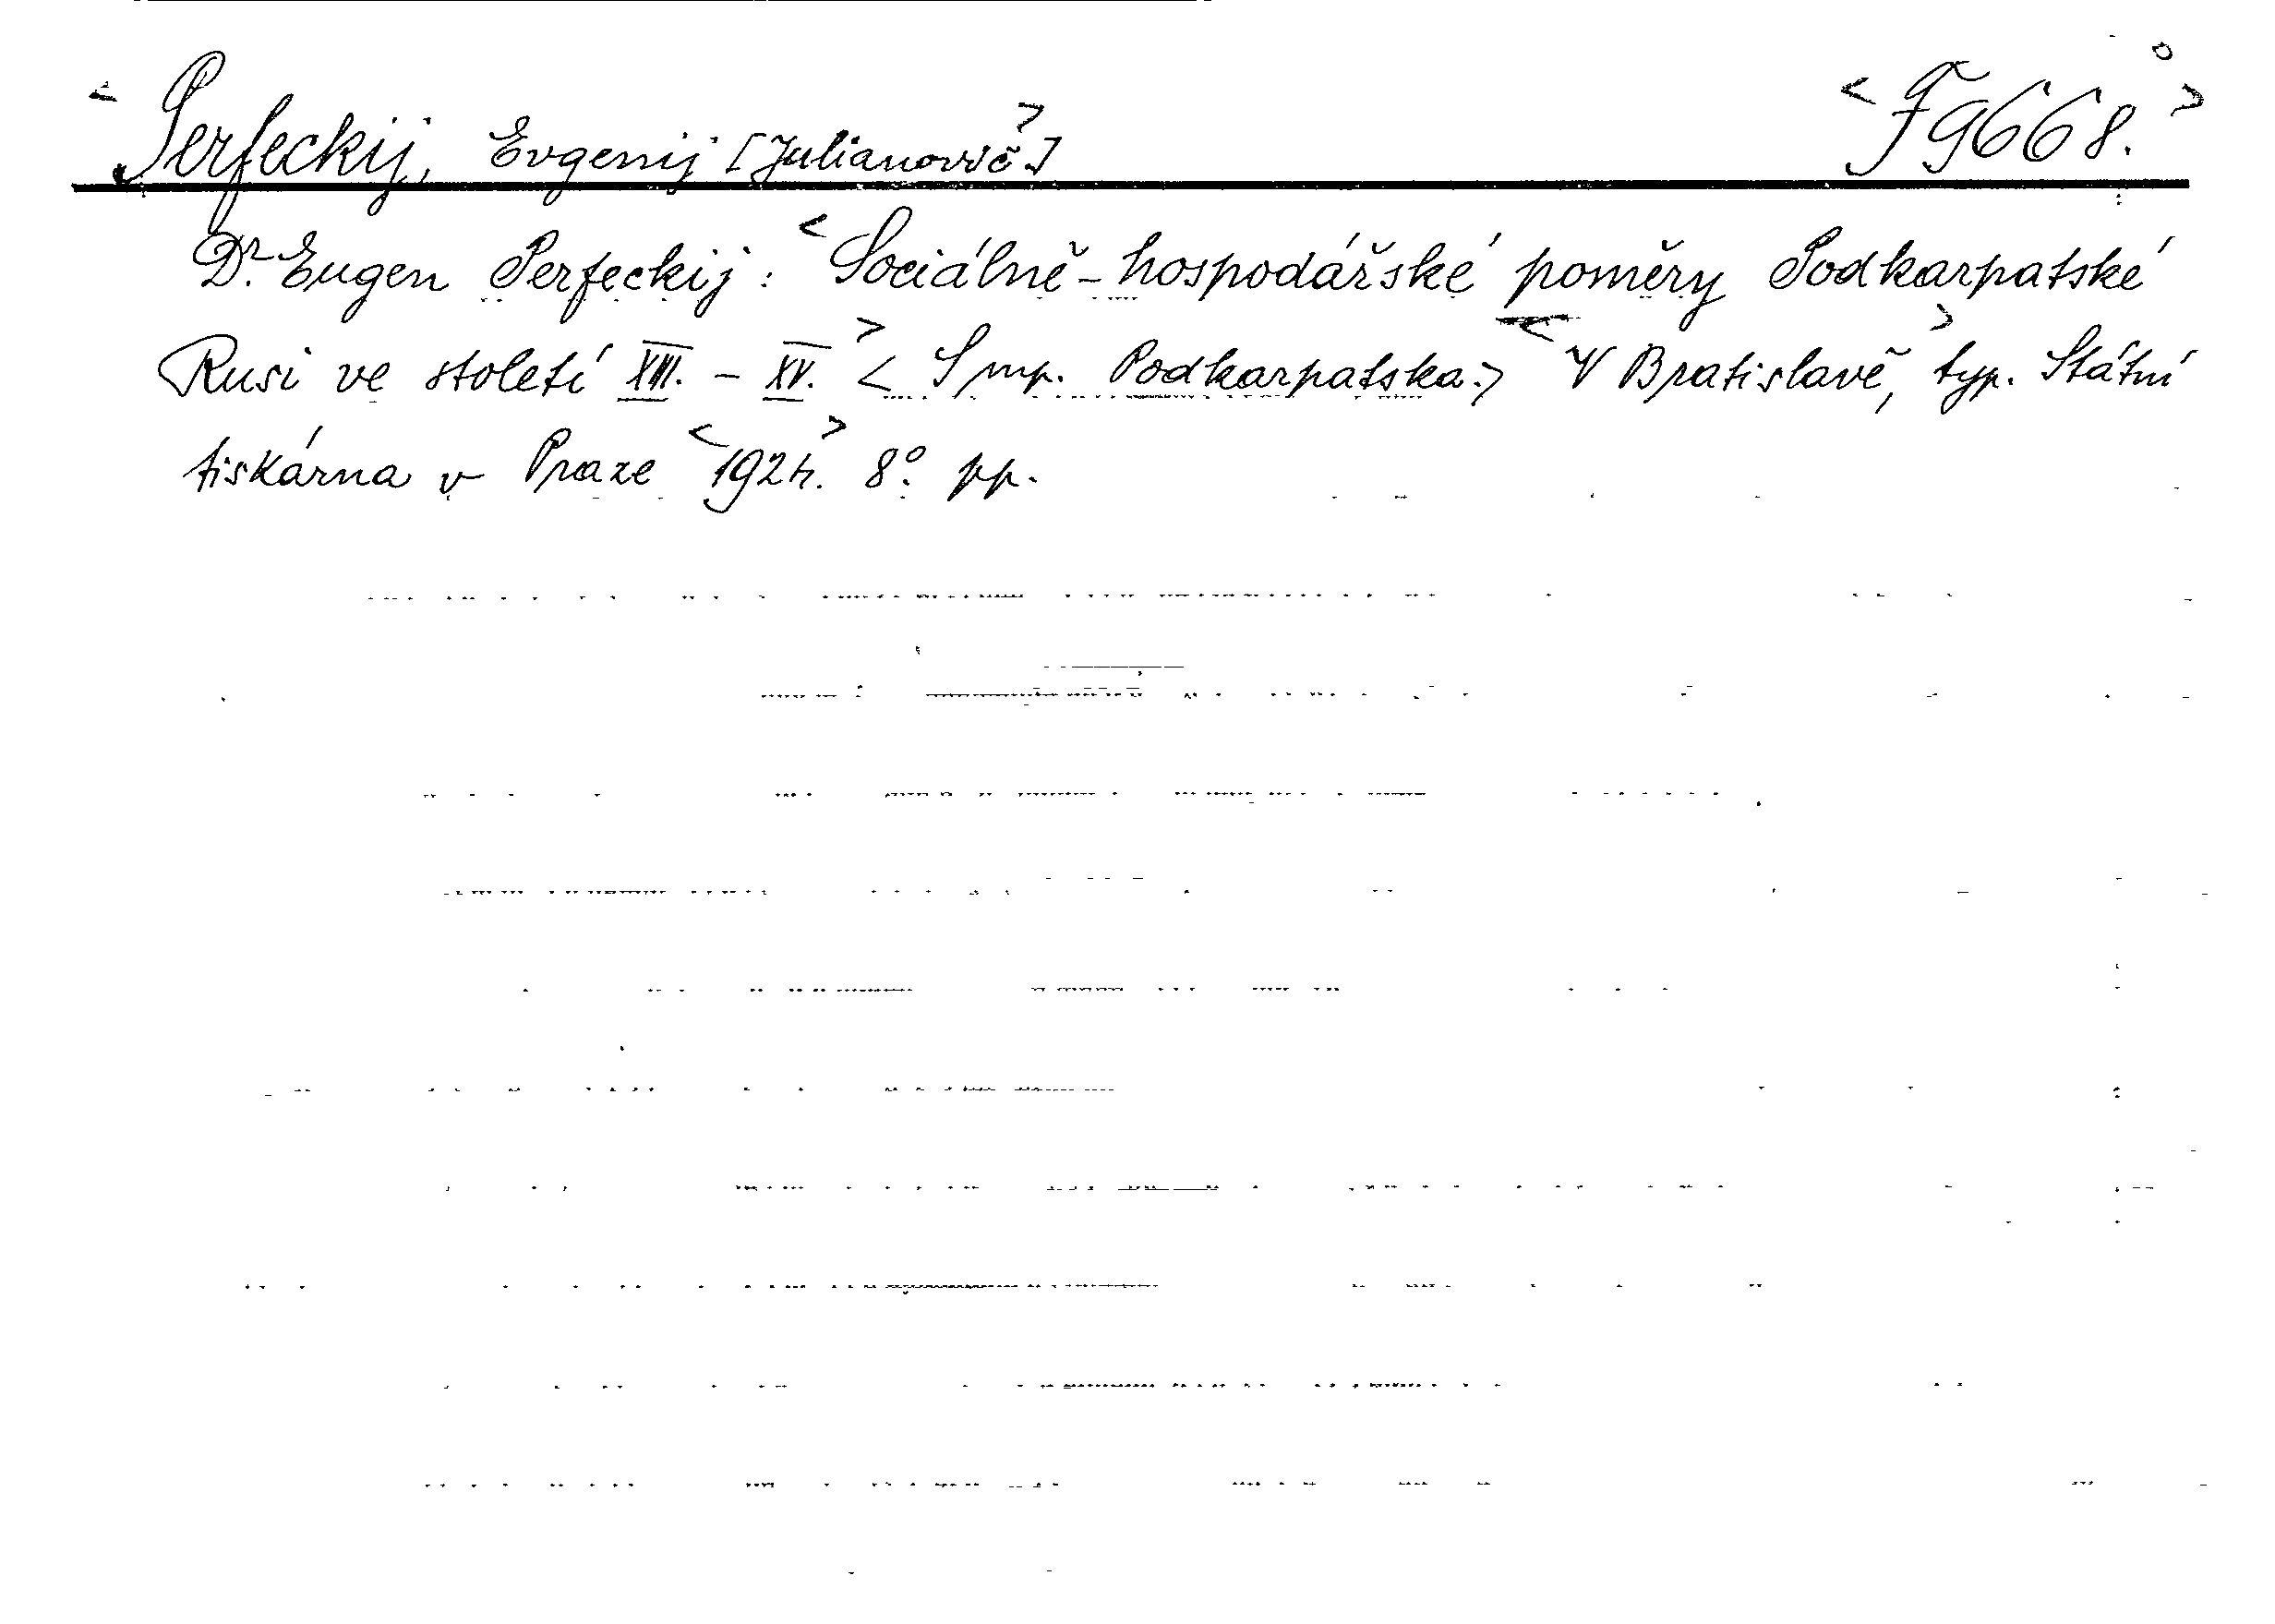 <Perfeckij, Evgenij [Julianovič>] <F 9668.>
Dr. Eugen Perfeckij: <Sociálně-hospodářské poměry Podkarpatské
Rusi ve století XIII. - XV.> < Imp. Podkarpatska.> <V Bratislavě,> typ. Státní
tiskárna v Praze <1924.> 8°. pp.